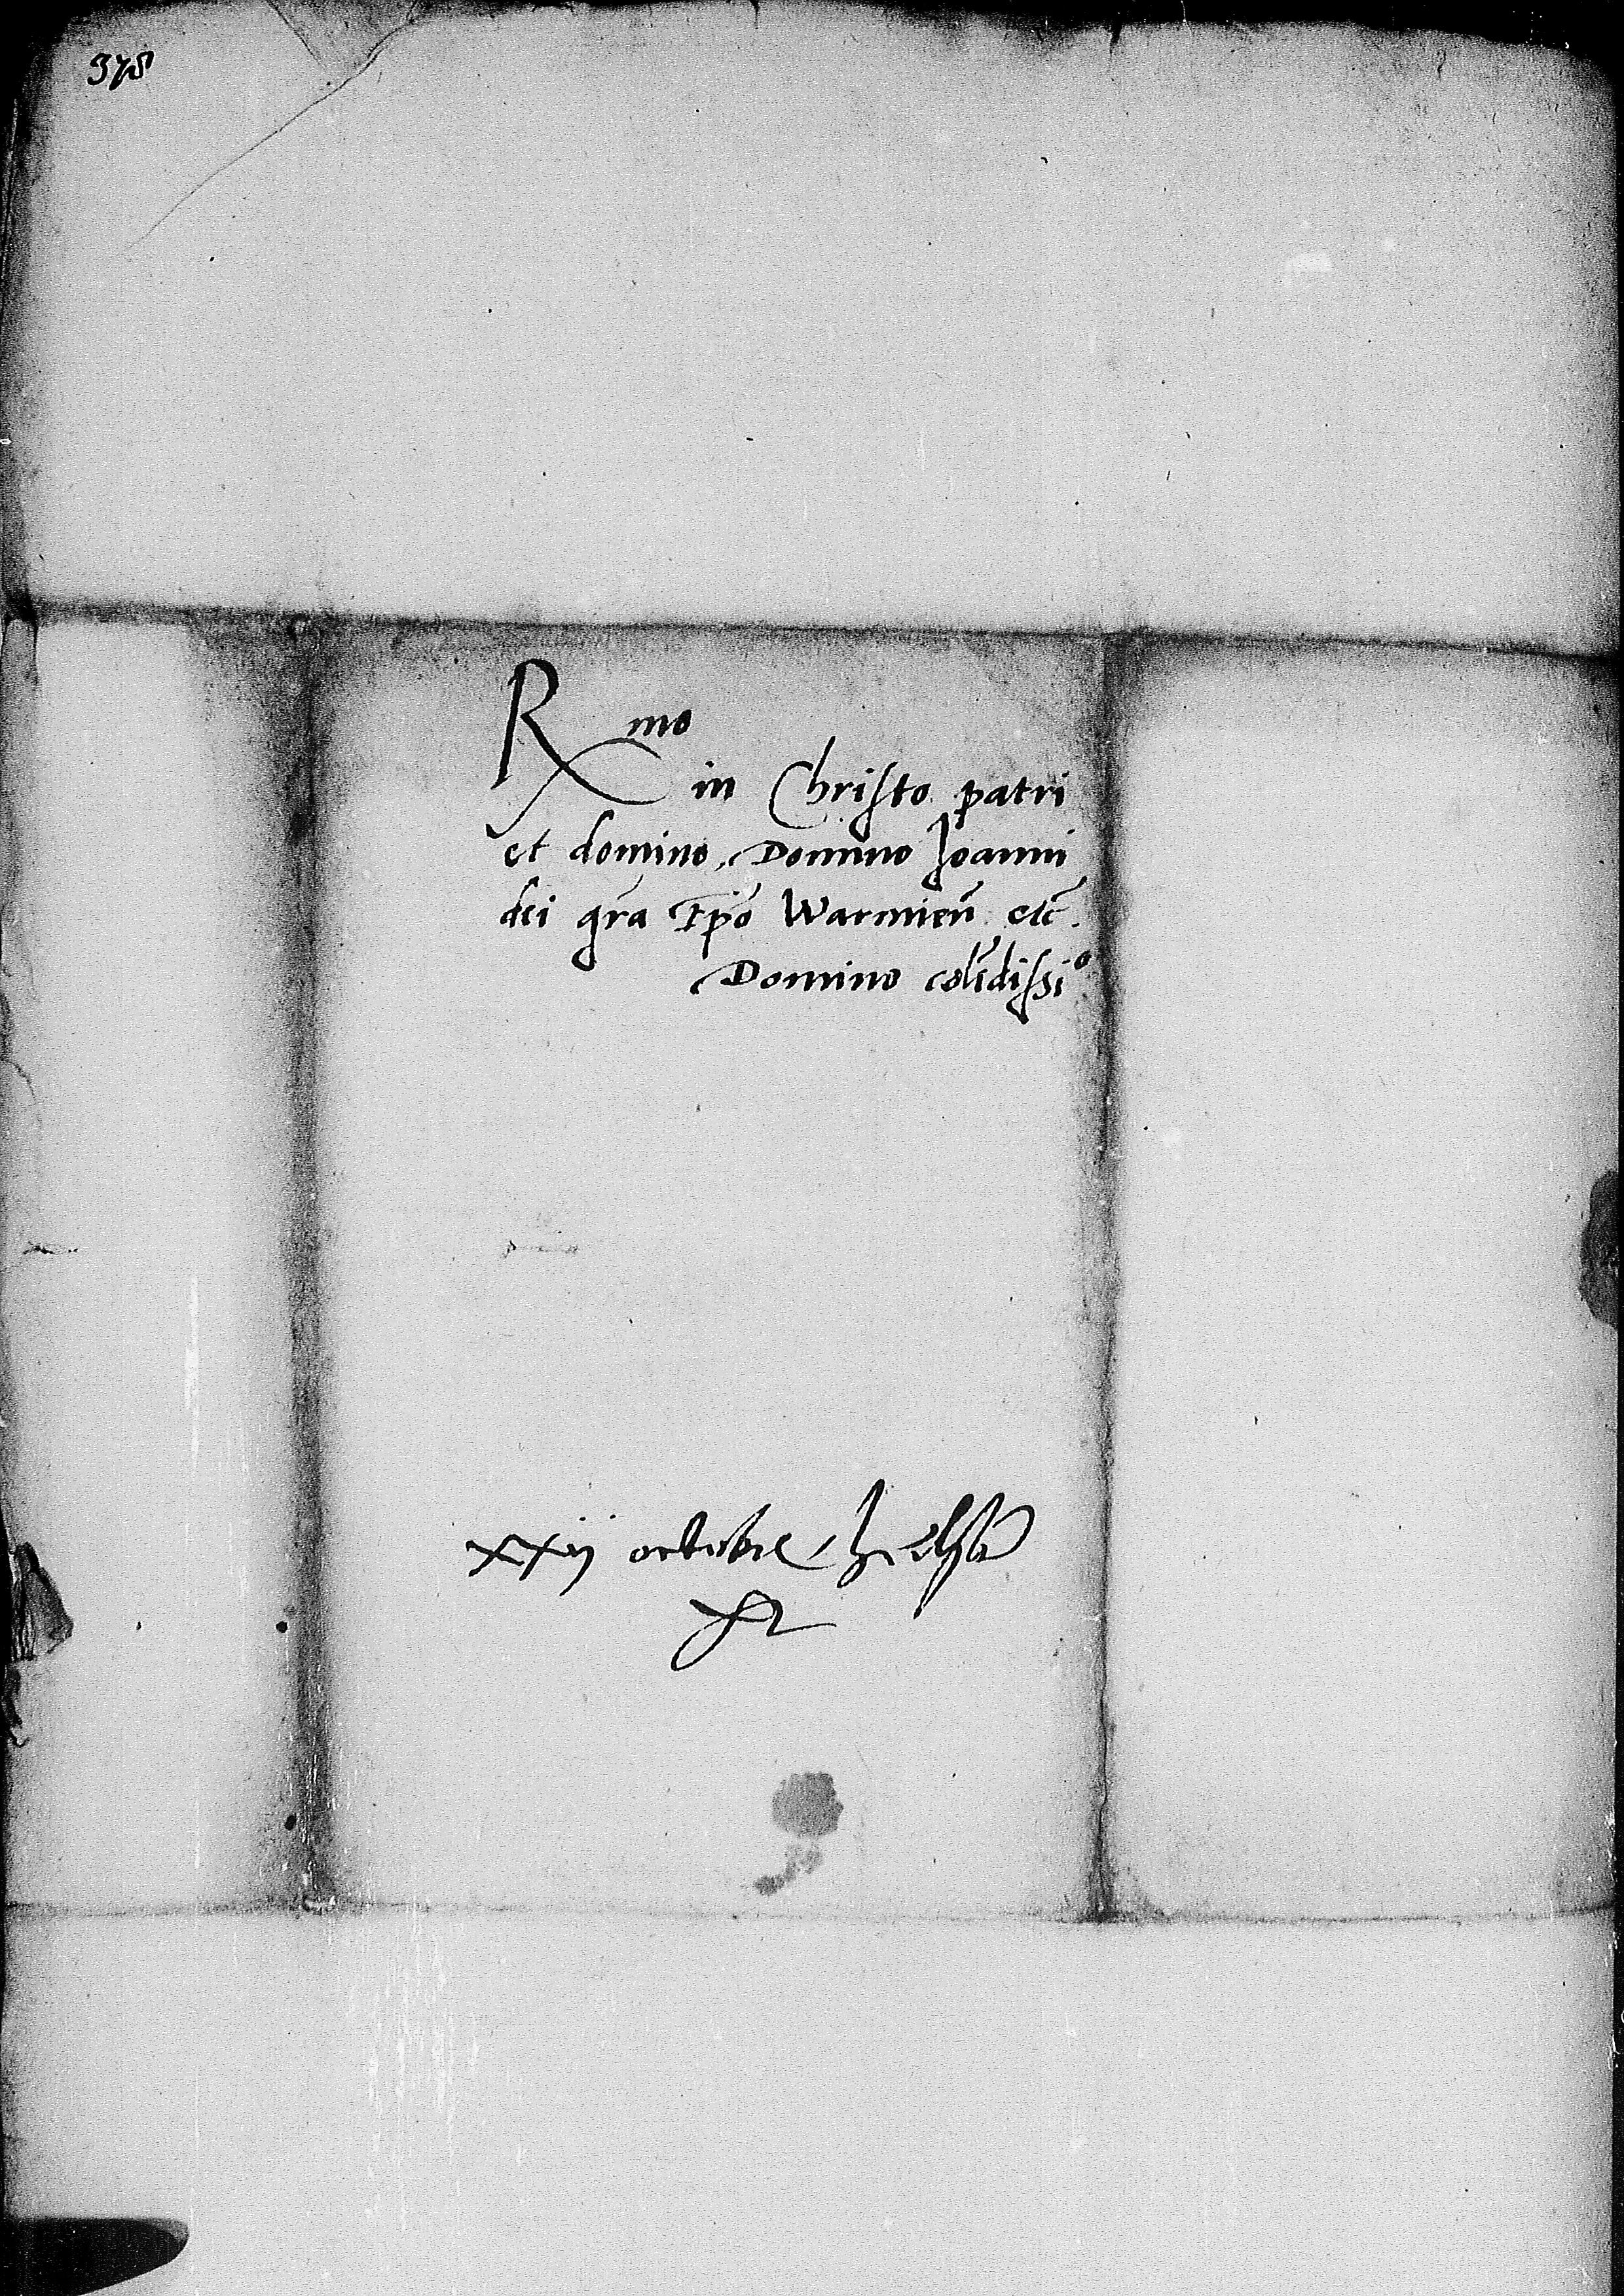 378
Rmo
in Christo patri
et domino, Domino Joanni
dei gra Epo Warmien etc.
Domino colendissio
xxij octobre